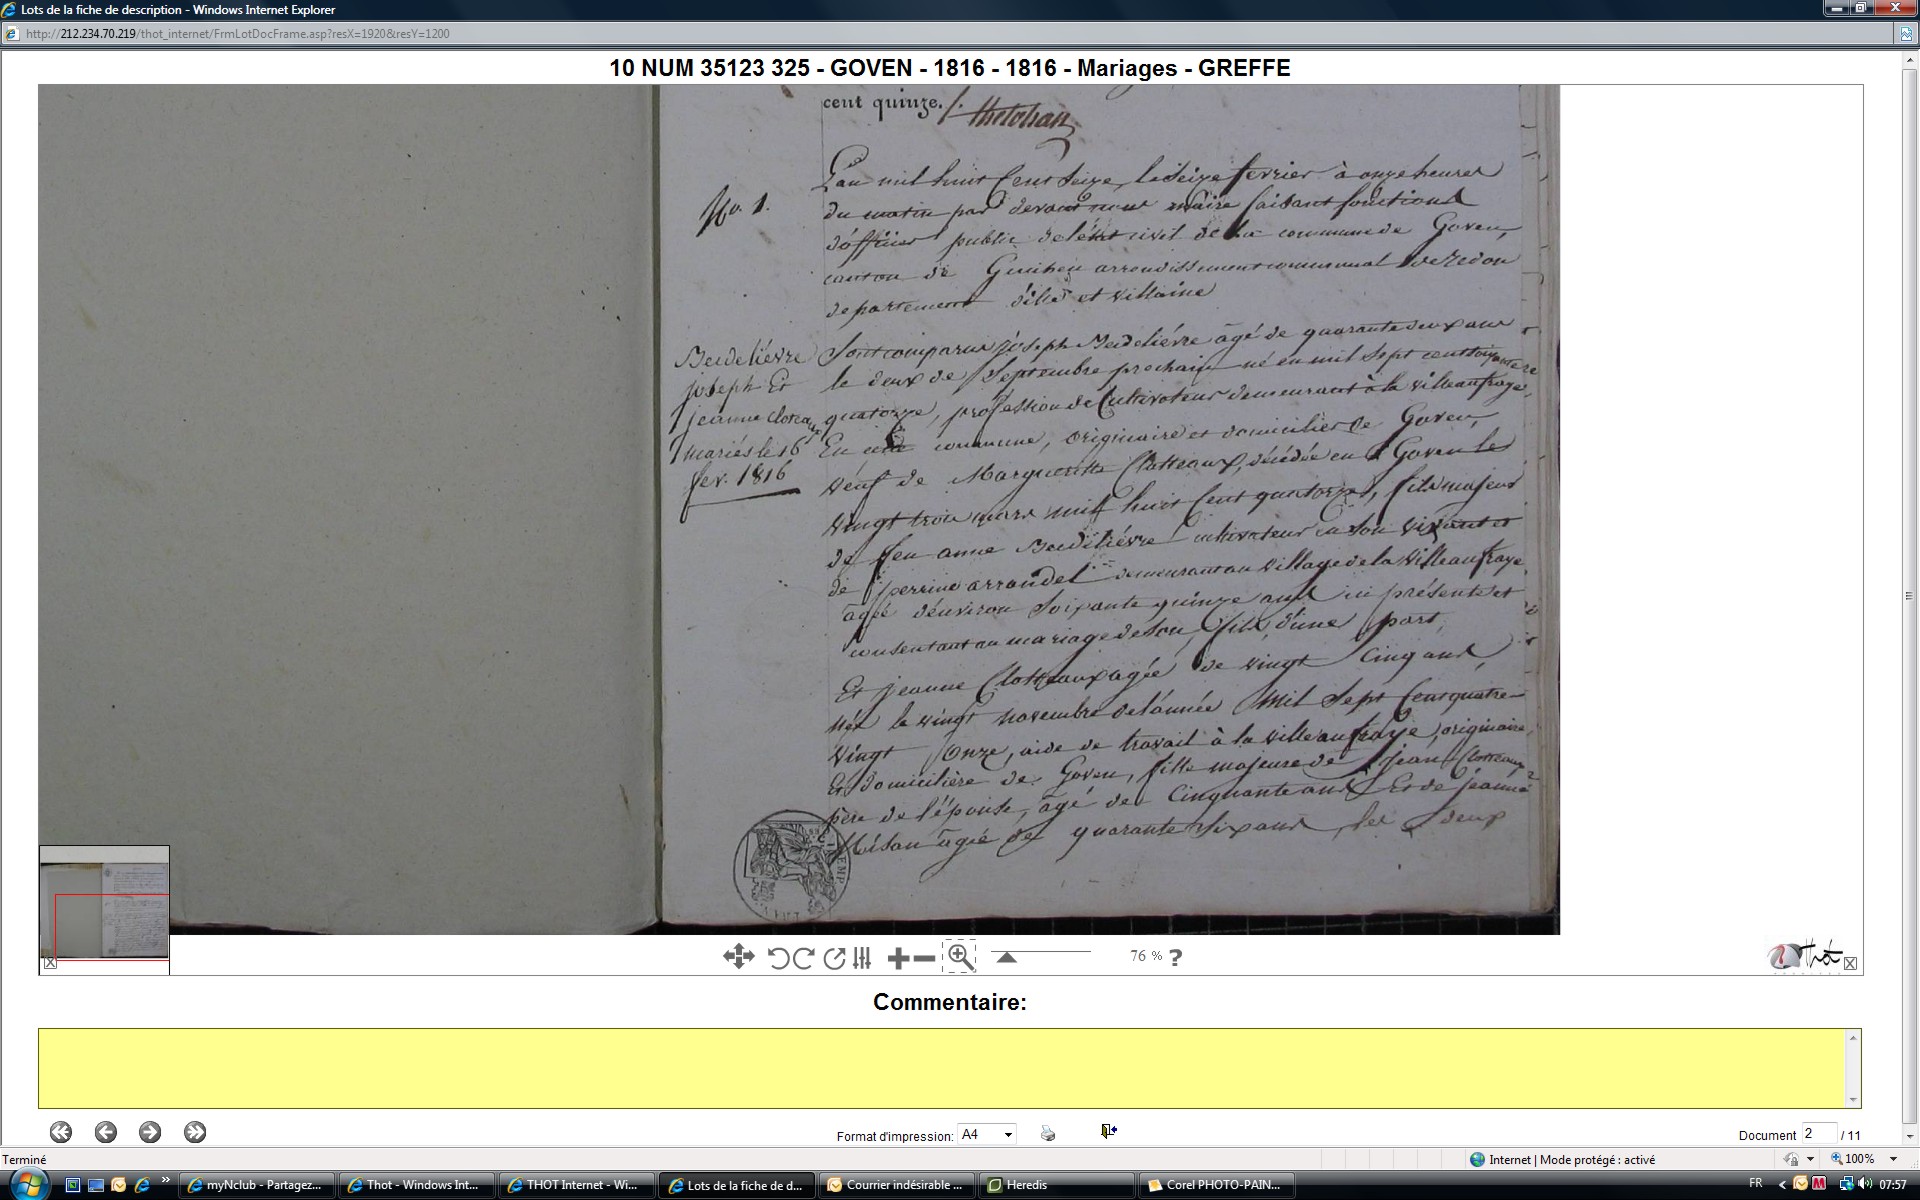 Lots de la fiche de description - Windows Internet Explorer
http://212.234.70.219/thot_internet/FrmLotDocFrame.asp?resX=1920&resY=1200
10 NUM 35123 325 - GOVEN - 1816 - 1816 - Mariages - GREFFE
cent quinze./.
No. 1.
L'an mil huit Cent Seize, le Seize fevrier à onze heures
du matin par devant nous maire faisant fonctions
d'officier public de l'état civil de la commune de Goven,
canton de Guichen arrondissement communal de Redon
departement d'ille et villaine
Berdelièvre
joseph Et
jeanne Cloteaux
mariés le 16
fev. 1816
Sont comparus joseph Berdelièvre âgé de quarante deux ans
le deux de Septembre prochain né en mil sept cent soixante
quatorze, profession de Cultivateur demeurant à la villeaufraye,
En cette commune, originaire et domicilier de Goven,
veuf de Margueritte Clotteaux, décédée en Goven le
vingt trois mars mil huit Cent quatorze, fils majeur
de feu anne Berdelièvre cultivateur en son vivant et
de perrine arrondel demeurant au village de la villeaufraye
âgée d'environ Soixante quinze ans ici présente et
consentant au mariage de son fils, d'une part,
Et jeanne Clotteaux agée de vingt Cinq ans,
née le vingt novembre de l'année Mil Sept Cent quatre-
vingt Onze, aide de travail à la villeaufraye, originaire
Et domicilière de Goven, fille majeure de jean Clotteaux
père de l'épouse, âgé de Cinquante ans Et de jeanne
âgée de quarante Six ans, les deux
76 %
Thot
Commentaire:
Format d'impression: A4
Document 2 / 11
Terminé
Internet | Mode protégé : activé
100%
myNclub - Partagez...
Thot - Windows Int...
THOT Internet - Wi...
Lots de la fiche de d...
Courrier indésirable ...
Heredis
Corel PHOTO-PAIN...
FR
07:57